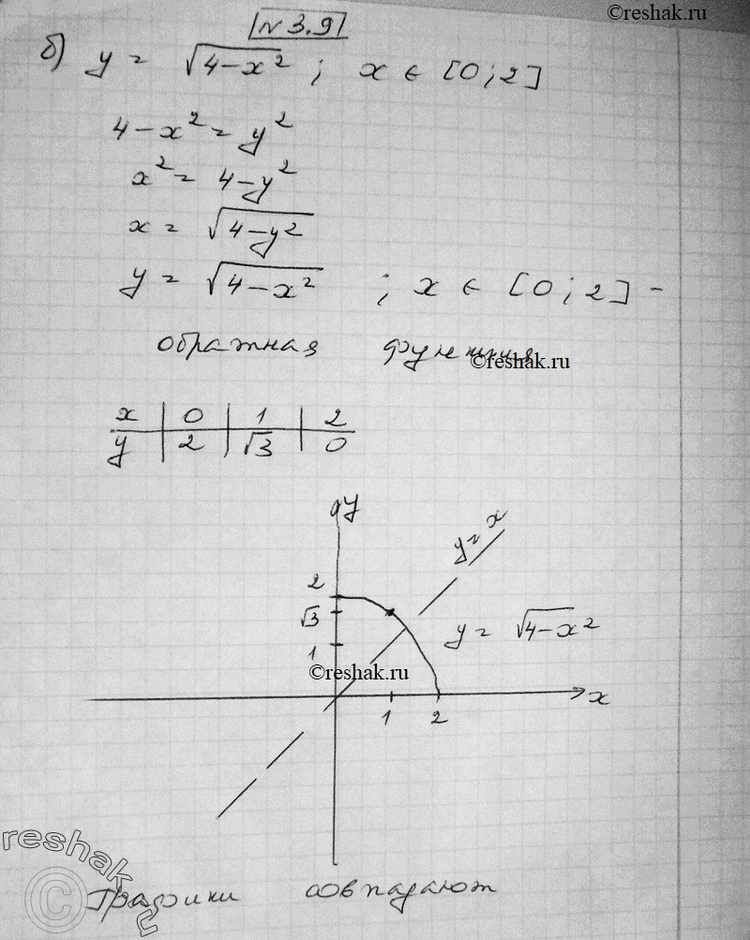 ©reshak.ru
№ 3.9
б) y = √(4-x²) ; x ∈ [0; 2]
4-x² = y²
x² = 4-y²
x = √(4-y²)
y = √(4-x²) ; x ∈ [0; 2] -
обратная функция
©reshak.ru
x | 0 | 1 | 2
y | 2 | √3 | 0
y
y = x
2
√3
y = √(4-x²)
1
©reshak.ru
1 2 x
reshak.ru
©
Графики совпадают